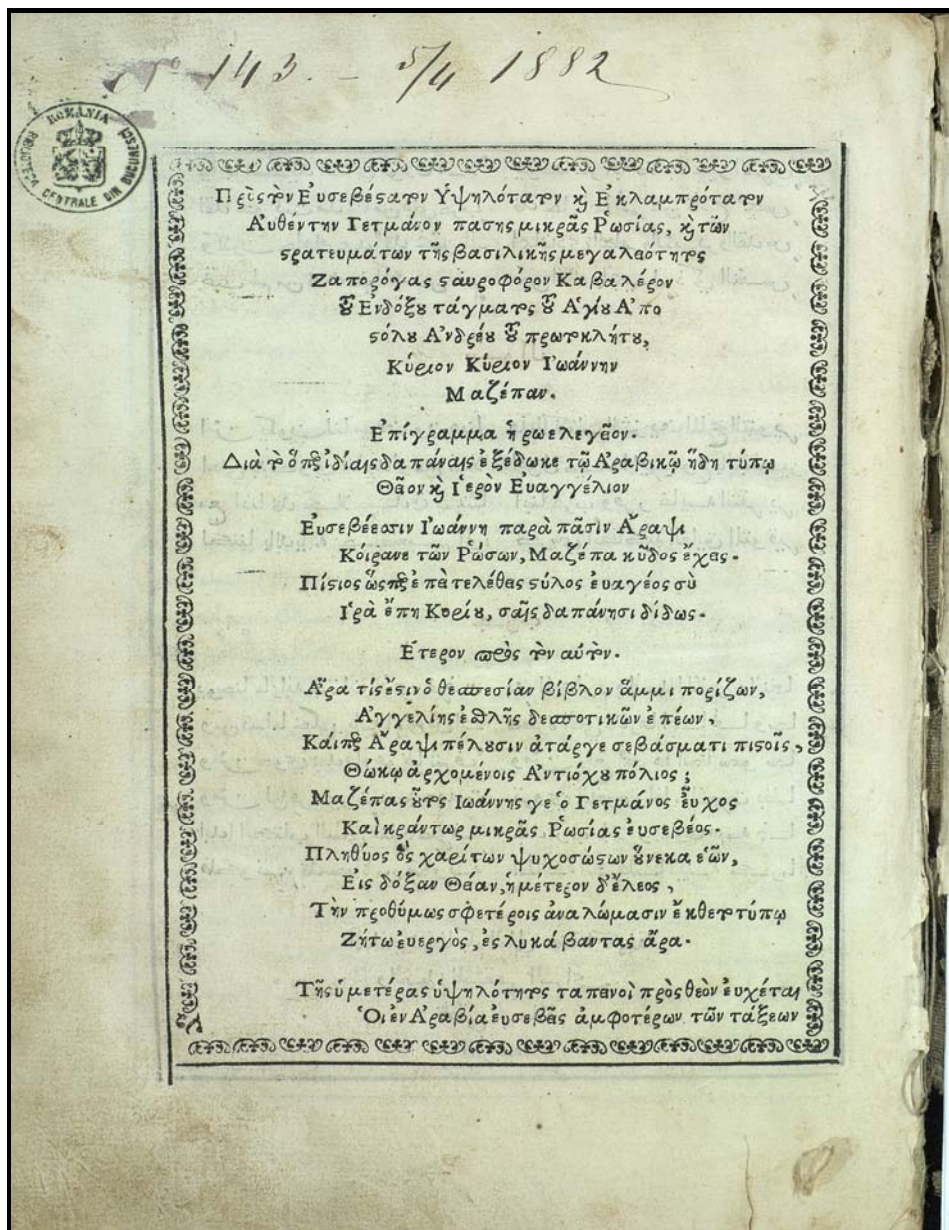 Nº 143. – 5/4 1882
ROMÂNIA
CENTRALE DIN BUCURESCI
Πρὸς τὸν Ευσεβέϛατον Ὑψηλότατον κὶ Εκλαμπρότατον
Αυθέντην Γετμάνον πασης μικρᾶς Ῥωσίας, κὶ τῶν
ϛρατευμάτων τῆς βασιλικῆς μεγαλειότητος
Ζαπορόγας ϛαυροφόρον Καβαλέρον
τοῦ Ενδόξου τάγματος τοῦ Ἁγίου Ἀπο
ϛόλου Ἀνδρέου τοῦ πρωτοκλήτου,
Κύριον Κύριον Ἰωάννην
Μαζέπαν.
Επίγραμμα ἡρωελεγεῖον.
Διὰ τὸ ὅτι ἰδίαις δαπάναις ἐξέδωκε τῷ Αραβικῷ ἤδη τύπῳ
Θεῖον κὶ Ἱερὸν Ευαγγέλιον
Ευσεβέεσσιν Ἰωάννη παρὰ πᾶσιν Ἄραψι
Κόιρανε τῶν Ῥώσων, Μαζέπα κῦδος ἔχεις.
Πίϛιος ὥς τις ἐπεὶ τελέθεις ϛύλος ἐυαγέος σὺ
Ἱρὰ ἔπη Κυρίου, σαῖς δαπάνησι δίδως.
Ετερον πρὸς τὸν αὐτὸν.
Ἆρα τίς ἐϛιν ὁ θεσπεσίαν βίβλον ἄμμι πορίζων,
Ἀγγελίης ἐσθλῆς δεσποτικῶν ἐπέων,
Κάι τοῖς Ἄραψι πέλουσιν ἀτάργε σεβάσματι πιϛοῖς,
Θώκῳ ἀρχομένοις Αντιόχου πόλιος;
Μαζέπας οὗτος Ιωάννης γε ὁ Γετμάνος εὖχος
Καὶ κράντωρ μικρᾶς Ῥωσίας ἐυσεβέος.
Πληθύος ὃς χαρίτων ψυχοσώϛων οὕνεκα ἑῶν,
Εις δόξαν Θείαν, ἡμέτερον δ' ἔλεος,
Τὴν προθύμως σφετέροις ἀναλώμασιν ἔκθετο τύπῳ
Ζήτω ἐυεργὸς, ἐς λυκάβαντας ἄρα.
Τῆς ὑμετέρας ὑψηλότητος ταπεινοὶ πρὸς θεὸν ἐυχέται
Ὁι ἐν Ἀραβίᾳ ἐυσεβεῖς ἀμφοτέρων τῶν τάξεων